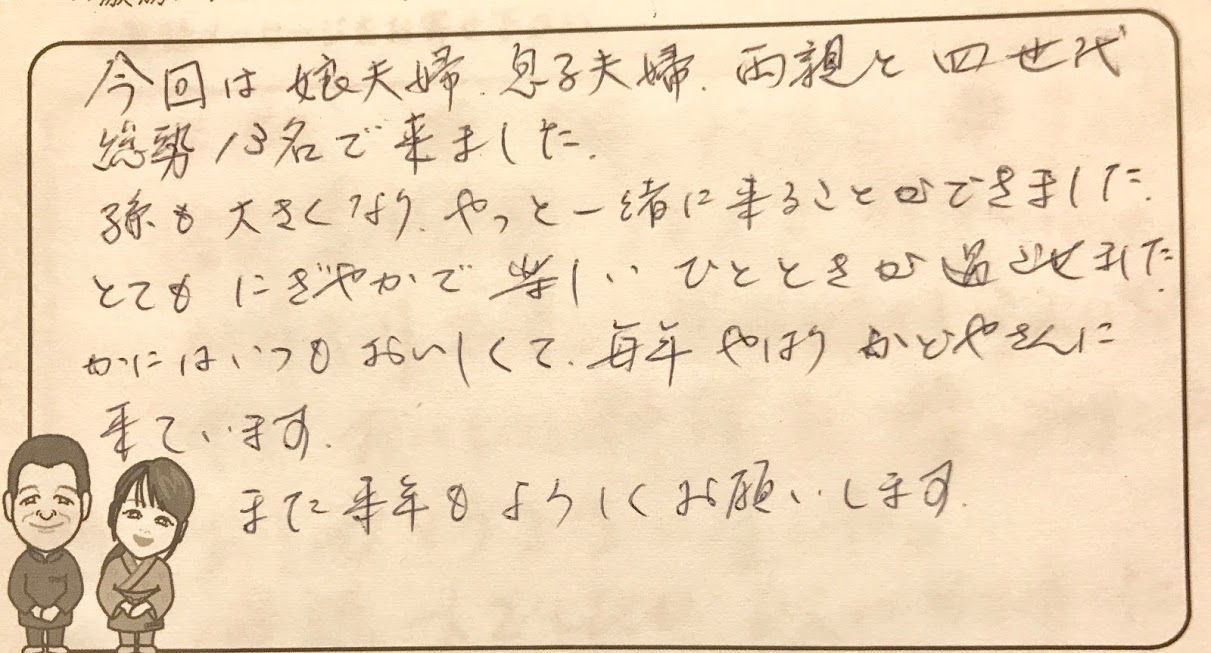 今回は娘夫婦、息子夫婦、両親と四世代
総勢13名で来ました。
孫も大きくなり、やっと一緒に来ることができました。
とてもにぎやかで楽しいひとときが過ごせました。
かにはいつもおいしくて、毎年やはりかどやさんに
来ています。
また来年もよろしくお願いします。